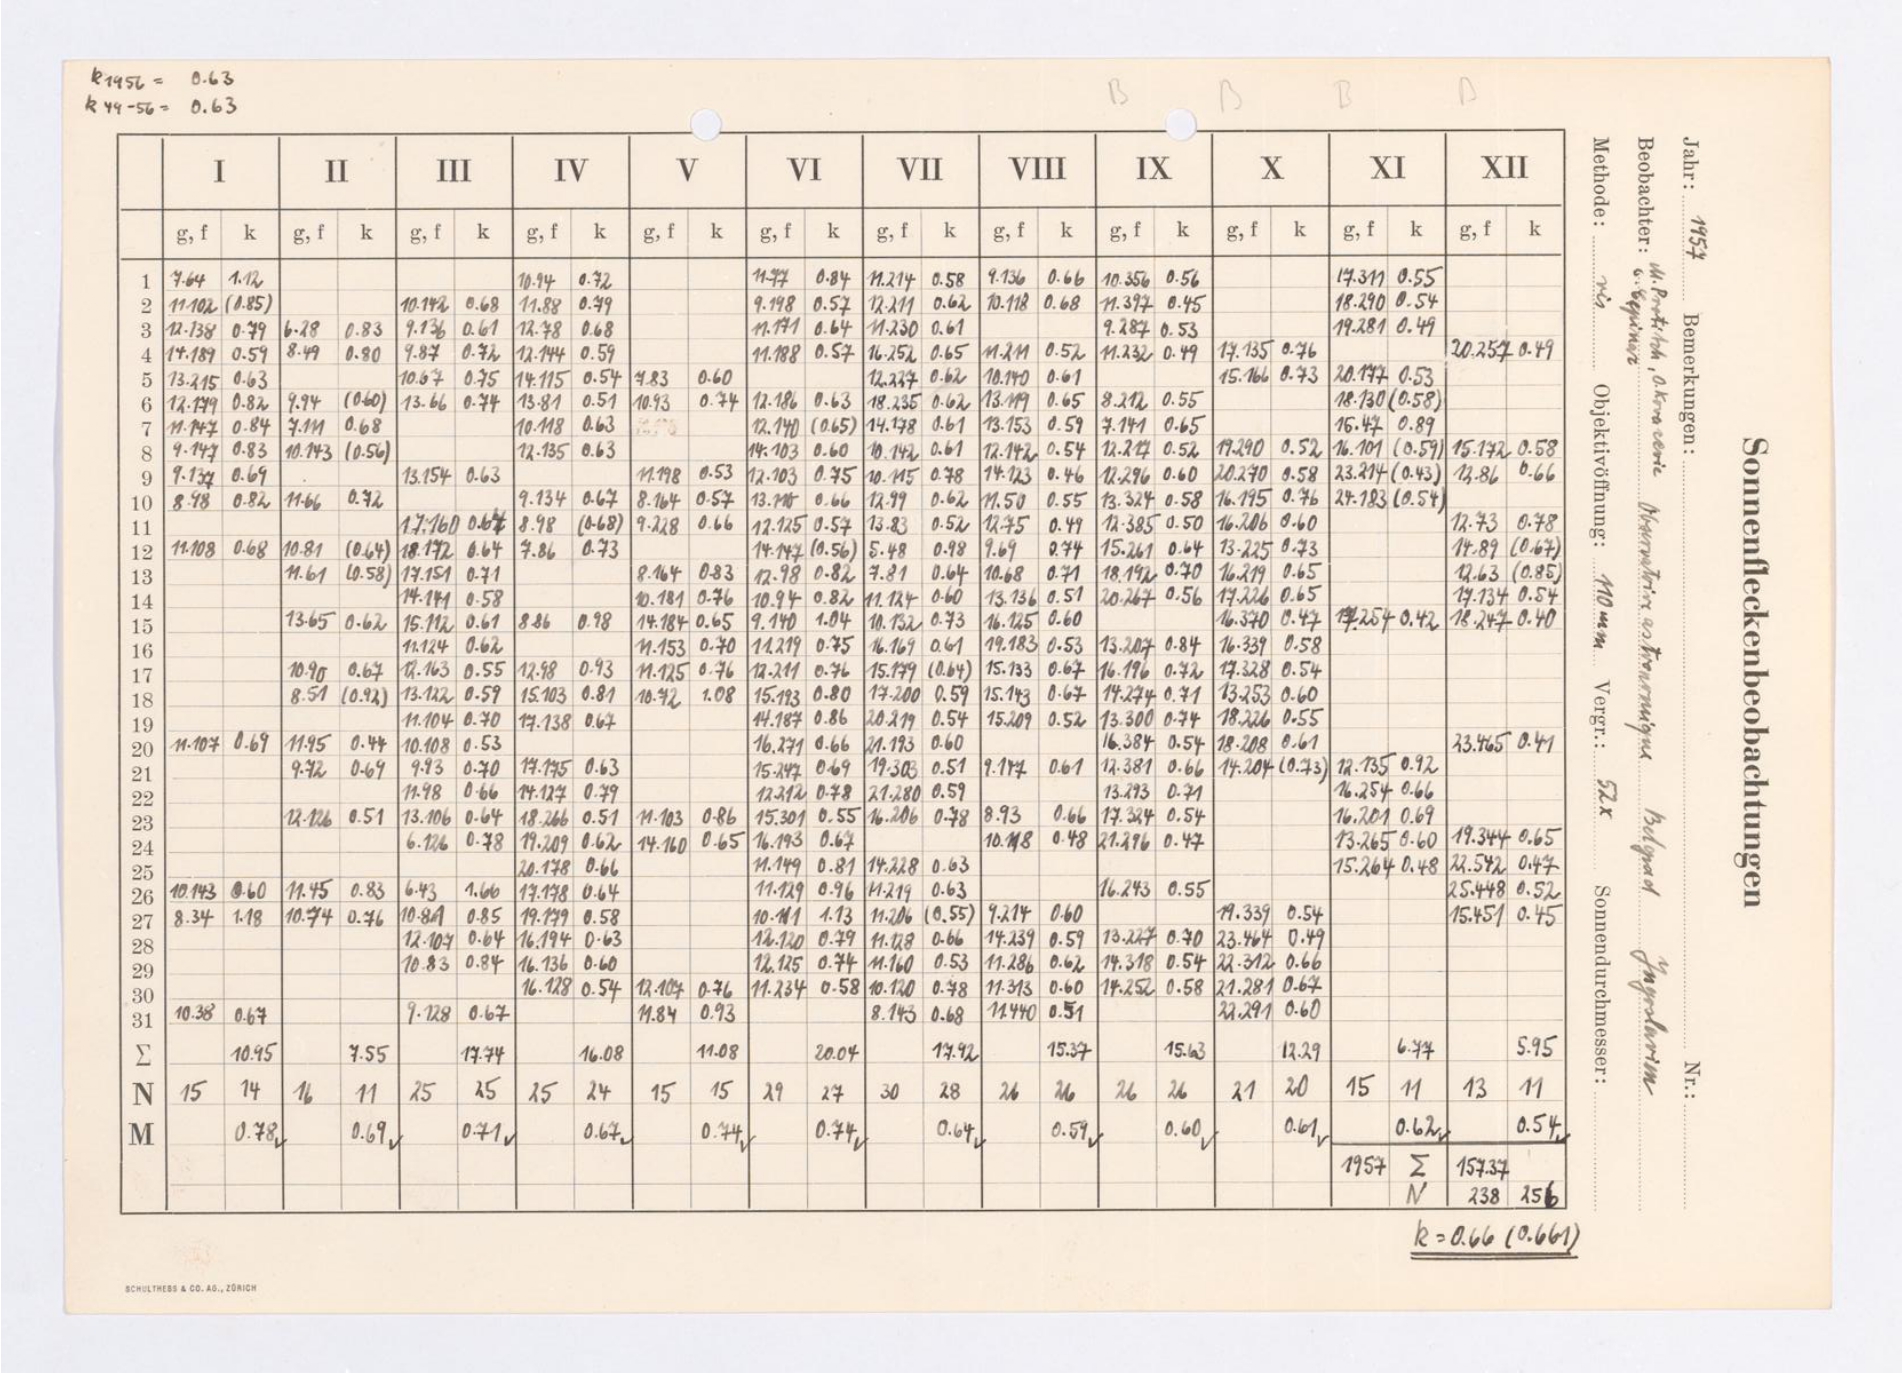 k 1956 = 0.63
k 49-56 = 0.63
B B B B
I II III IV V VI VII VIII IX X XI XII
g, f k g, f k g, f k g, f k g, f k g, f k g, f k g, f k g, f k g, f k g, f k g, f k
1 7.64 1.12 10.94 0.72 11.77 0.84 11.214 0.58 9.136 0.66 10.356 0.56 17.311 0.55
2 11.102 (0.85) 10.142 0.68 11.88 0.79 9.198 0.57 12.211 0.62 10.118 0.68 11.397 0.45 18.290 0.54
3 12.138 0.79 6.28 0.83 9.136 0.61 12.78 0.68 11.171 0.64 11.230 0.61 9.287 0.53 19.281 0.49
4 14.189 0.59 8.49 0.80 9.87 0.72 12.144 0.59 11.188 0.57 16.252 0.65 11.211 0.52 11.232 0.49 17.135 0.76 20.257 0.49
5 13.215 0.63 10.67 0.75 14.115 0.54 7.83 0.60 12.227 0.62 10.140 0.61 15.166 0.73 20.177 0.53
6 12.179 0.82 9.94 (0.60) 13.66 0.74 13.81 0.51 10.93 0.74 12.186 0.63 18.235 0.62 13.119 0.65 8.212 0.55 18.130 (0.58)
7 11.147 0.84 7.111 0.68 10.118 0.63 12.140 (0.65) 14.178 0.61 13.153 0.59 7.141 0.65 16.47 0.89
8 9.147 0.83 10.143 (0.56) 12.135 0.63 14.103 0.60 10.142 0.61 12.142 0.54 12.217 0.52 19.290 0.52 16.101 (0.59) 15.172 0.58
9 9.137 0.69 13.154 0.63 11.198 0.53 12.103 0.75 10.115 0.78 14.123 0.46 12.296 0.60 20.270 0.58 23.214 (0.43) 12.86 0.66
10 8.98 0.82 11.66 0.72 9.134 0.67 8.164 0.57 13.110 0.66 12.99 0.62 11.50 0.55 13.324 0.58 16.195 0.76 24.183 (0.54)
11 17.160 0.67 8.98 (0.68) 9.228 0.66 12.125 0.57 13.83 0.52 12.75 0.49 12.385 0.50 16.206 0.60 12.73 0.78
12 11.108 0.68 10.81 (0.64) 18.172 0.64 7.86 0.73 14.147 (0.56) 5.48 0.98 9.69 0.74 15.261 0.64 13.225 0.73 14.89 (0.67)
13 11.61 (0.58) 17.151 0.71 8.164 0.83 12.98 0.82 7.81 0.64 10.68 0.71 18.192 0.70 16.219 0.65 12.63 (0.85)
14 14.141 0.58 10.181 0.76 10.94 0.82 11.124 0.60 13.136 0.51 20.267 0.56 17.226 0.65 17.134 0.54
15 13.65 0.62 15.112 0.61 8.86 0.98 14.184 0.65 9.140 1.04 10.132 0.73 16.125 0.60 16.370 0.47 17.254 0.42 18.247 0.40
16 11.124 0.62 11.153 0.70 11.219 0.75 16.169 0.61 19.183 0.53 13.207 0.84 16.339 0.58
17 10.90 0.67 12.163 0.55 12.98 0.93 11.125 0.76 12.211 0.76 15.179 (0.64) 15.133 0.67 16.196 0.72 17.328 0.54
18 8.51 (0.92) 13.122 0.59 15.103 0.81 10.72 1.08 15.193 0.80 17.200 0.59 15.143 0.67 14.274 0.71 13.253 0.60
19 11.104 0.70 17.138 0.67 14.187 0.86 20.219 0.54 15.209 0.52 13.300 0.74 18.226 0.55
20 11.107 0.69 11.95 0.44 10.108 0.53 16.271 0.66 21.193 0.60 16.384 0.54 18.208 0.61 23.465 0.41
21 9.72 0.69 9.93 0.70 17.175 0.63 15.247 0.69 19.303 0.51 9.147 0.61 12.381 0.66 14.204 (0.73) 12.135 0.92
22 11.98 0.66 14.127 0.79 12.212 0.78 21.280 0.59 13.293 0.71 16.254 0.66
23 12.126 0.51 13.106 0.64 18.266 0.51 11.103 0.86 15.301 0.55 16.206 0.78 8.93 0.66 17.324 0.54 16.201 0.69
24 6.126 0.78 19.209 0.62 14.160 0.65 16.193 0.67 10.118 0.48 21.296 0.47 13.265 0.60 19.344 0.65
25 20.178 0.66 11.149 0.81 14.228 0.63 15.264 0.48 22.542 0.47
26 10.143 0.60 11.45 0.83 6.43 1.66 17.178 0.64 11.129 0.96 11.219 0.63 16.243 0.55 25.448 0.52
27 8.34 1.18 10.74 0.76 10.81 0.85 19.179 0.58 10.111 1.13 11.206 (0.55) 9.214 0.60 19.339 0.54 15.451 0.45
28 12.107 0.64 16.194 0.63 12.120 0.79 11.128 0.66 14.239 0.59 13.227 0.70 23.464 0.49
29 10.83 0.84 16.136 0.60 12.125 0.74 11.160 0.53 11.286 0.62 14.318 0.54 22.312 0.66
30 16.128 0.54 12.107 0.76 11.234 0.58 10.120 0.78 11.313 0.60 14.252 0.58 21.281 0.67
31 10.38 0.67 9.128 0.67 11.84 0.93 8.143 0.68 11.440 0.51 22.291 0.60
Σ 10.95 7.55 17.74 16.08 11.08 20.04 17.92 15.37 15.63 12.29 6.77 5.95
N 15 14 16 11 25 25 25 24 15 15 29 27 30 28 26 26 26 26 21 20 15 11 13 11
M 0.78✓ 0.69✓ 0.71✓ 0.67✓ 0.74✓ 0.74✓ 0.64✓ 0.59✓ 0.60✓ 0.61✓ 0.62✓ 0.54✓
1957 Σ 157.37
N 238 256
k = 0.66 (0.661)
SCHULTHESS & CO. AG., ZÜRICH
Sonnenfleckenbeobachtungen
Jahr: 1957 Bemerkungen: Nr.:
Beobachter: M. Protitch, Observatoire astronomique Belgrad Jugoslavien
Methode: vis Objektivöffnung: 110 mm Vergr.: 52x Sonnendurchmesser: